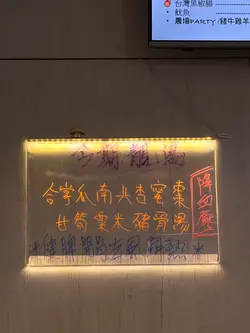 台灣黑椒腸
• 魷魚
• 農場PARTY (豬牛雞羊
今期靚湯
合掌瓜南北杏蜜棗
甘粟米豬骨湯
降血壓
*健脾開胃 清熱*